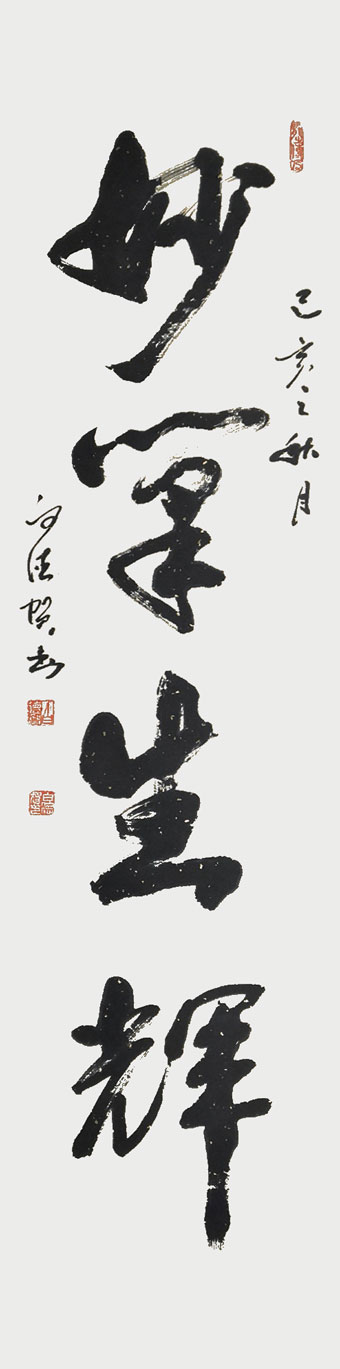 己亥之秋月
妙筆生輝
书